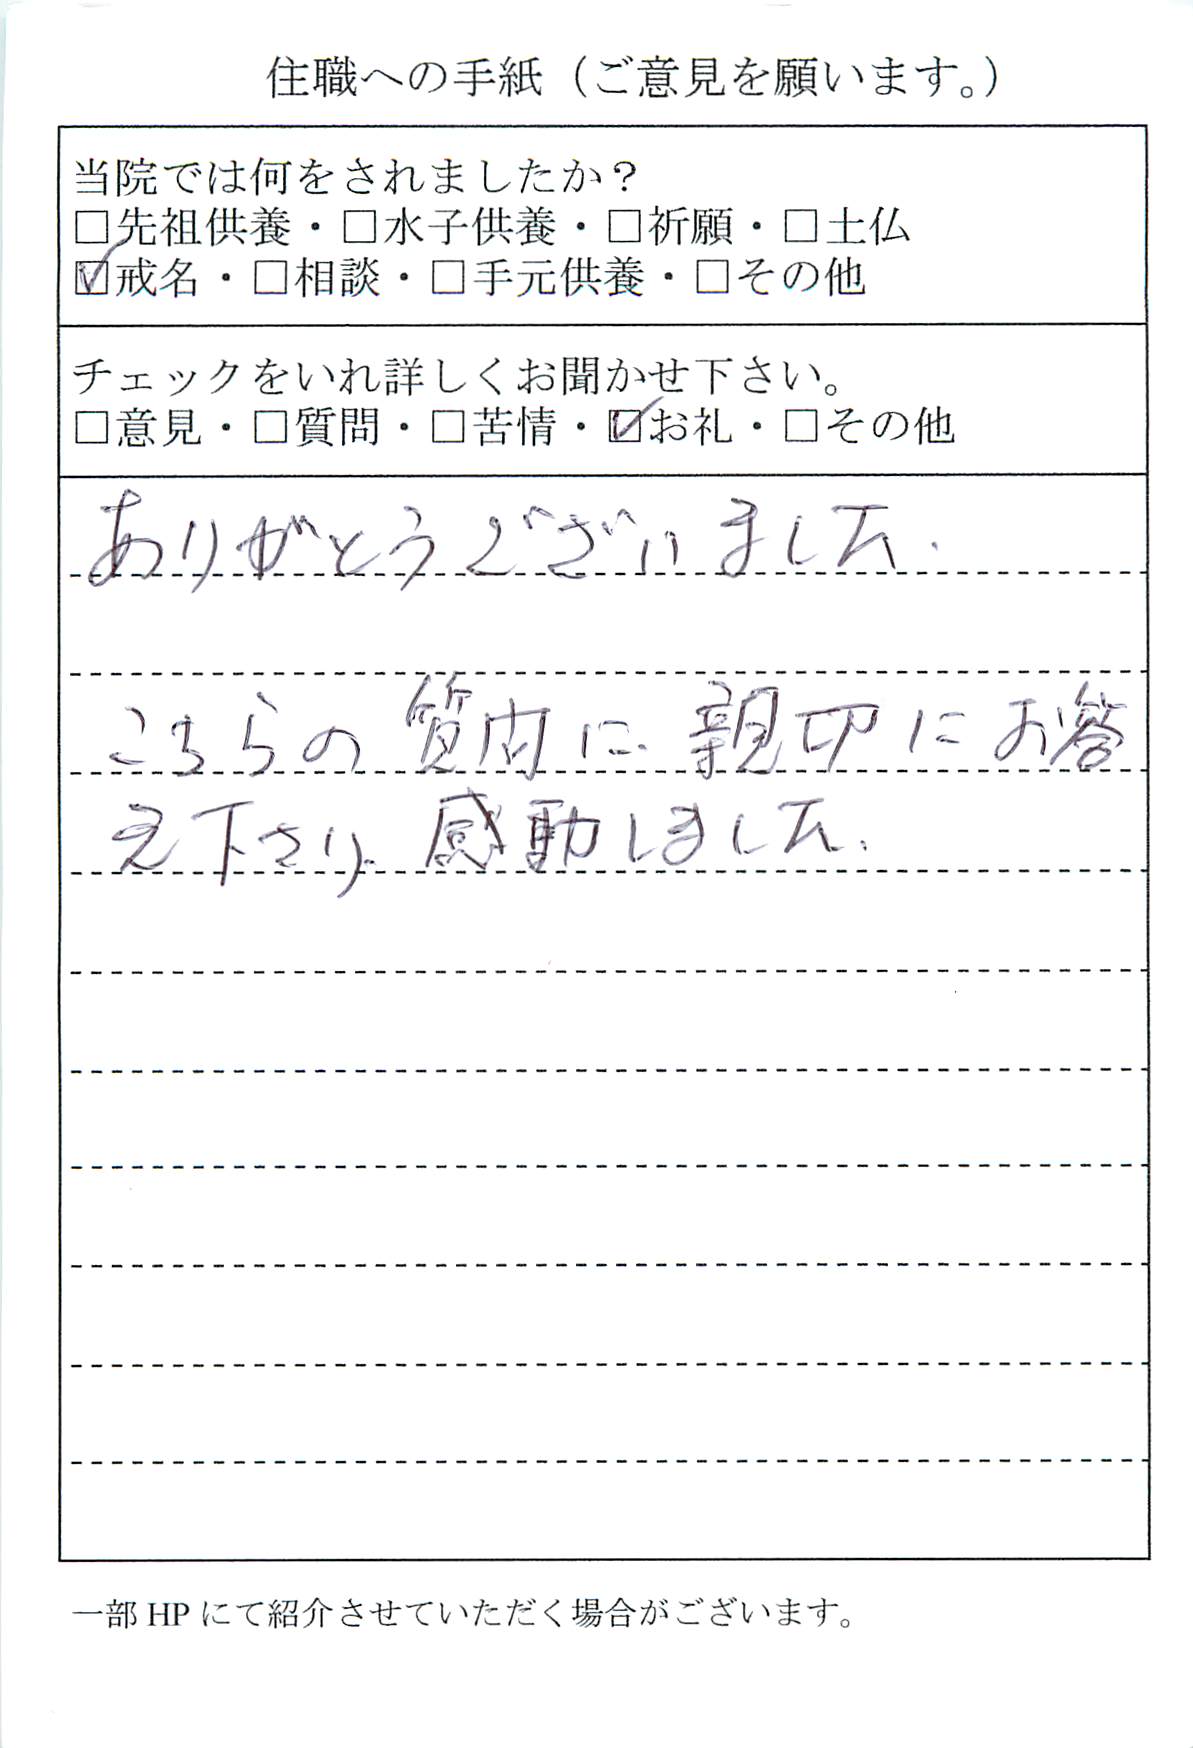 住職への手紙（ご意見を願います。）
当院では何をされましたか？
□先祖供養・□水子供養・□祈願・□土仏
☑戒名・□相談・□手元供養・□その他
チェックをいれ詳しくお聞かせ下さい。
□意見・□質問・□苦情・☑お礼・□その他
ありがとうございました.
こちらの質問に、親切にお答
え下さり、感動しました.
一部 HP にて紹介させていただく場合がございます。